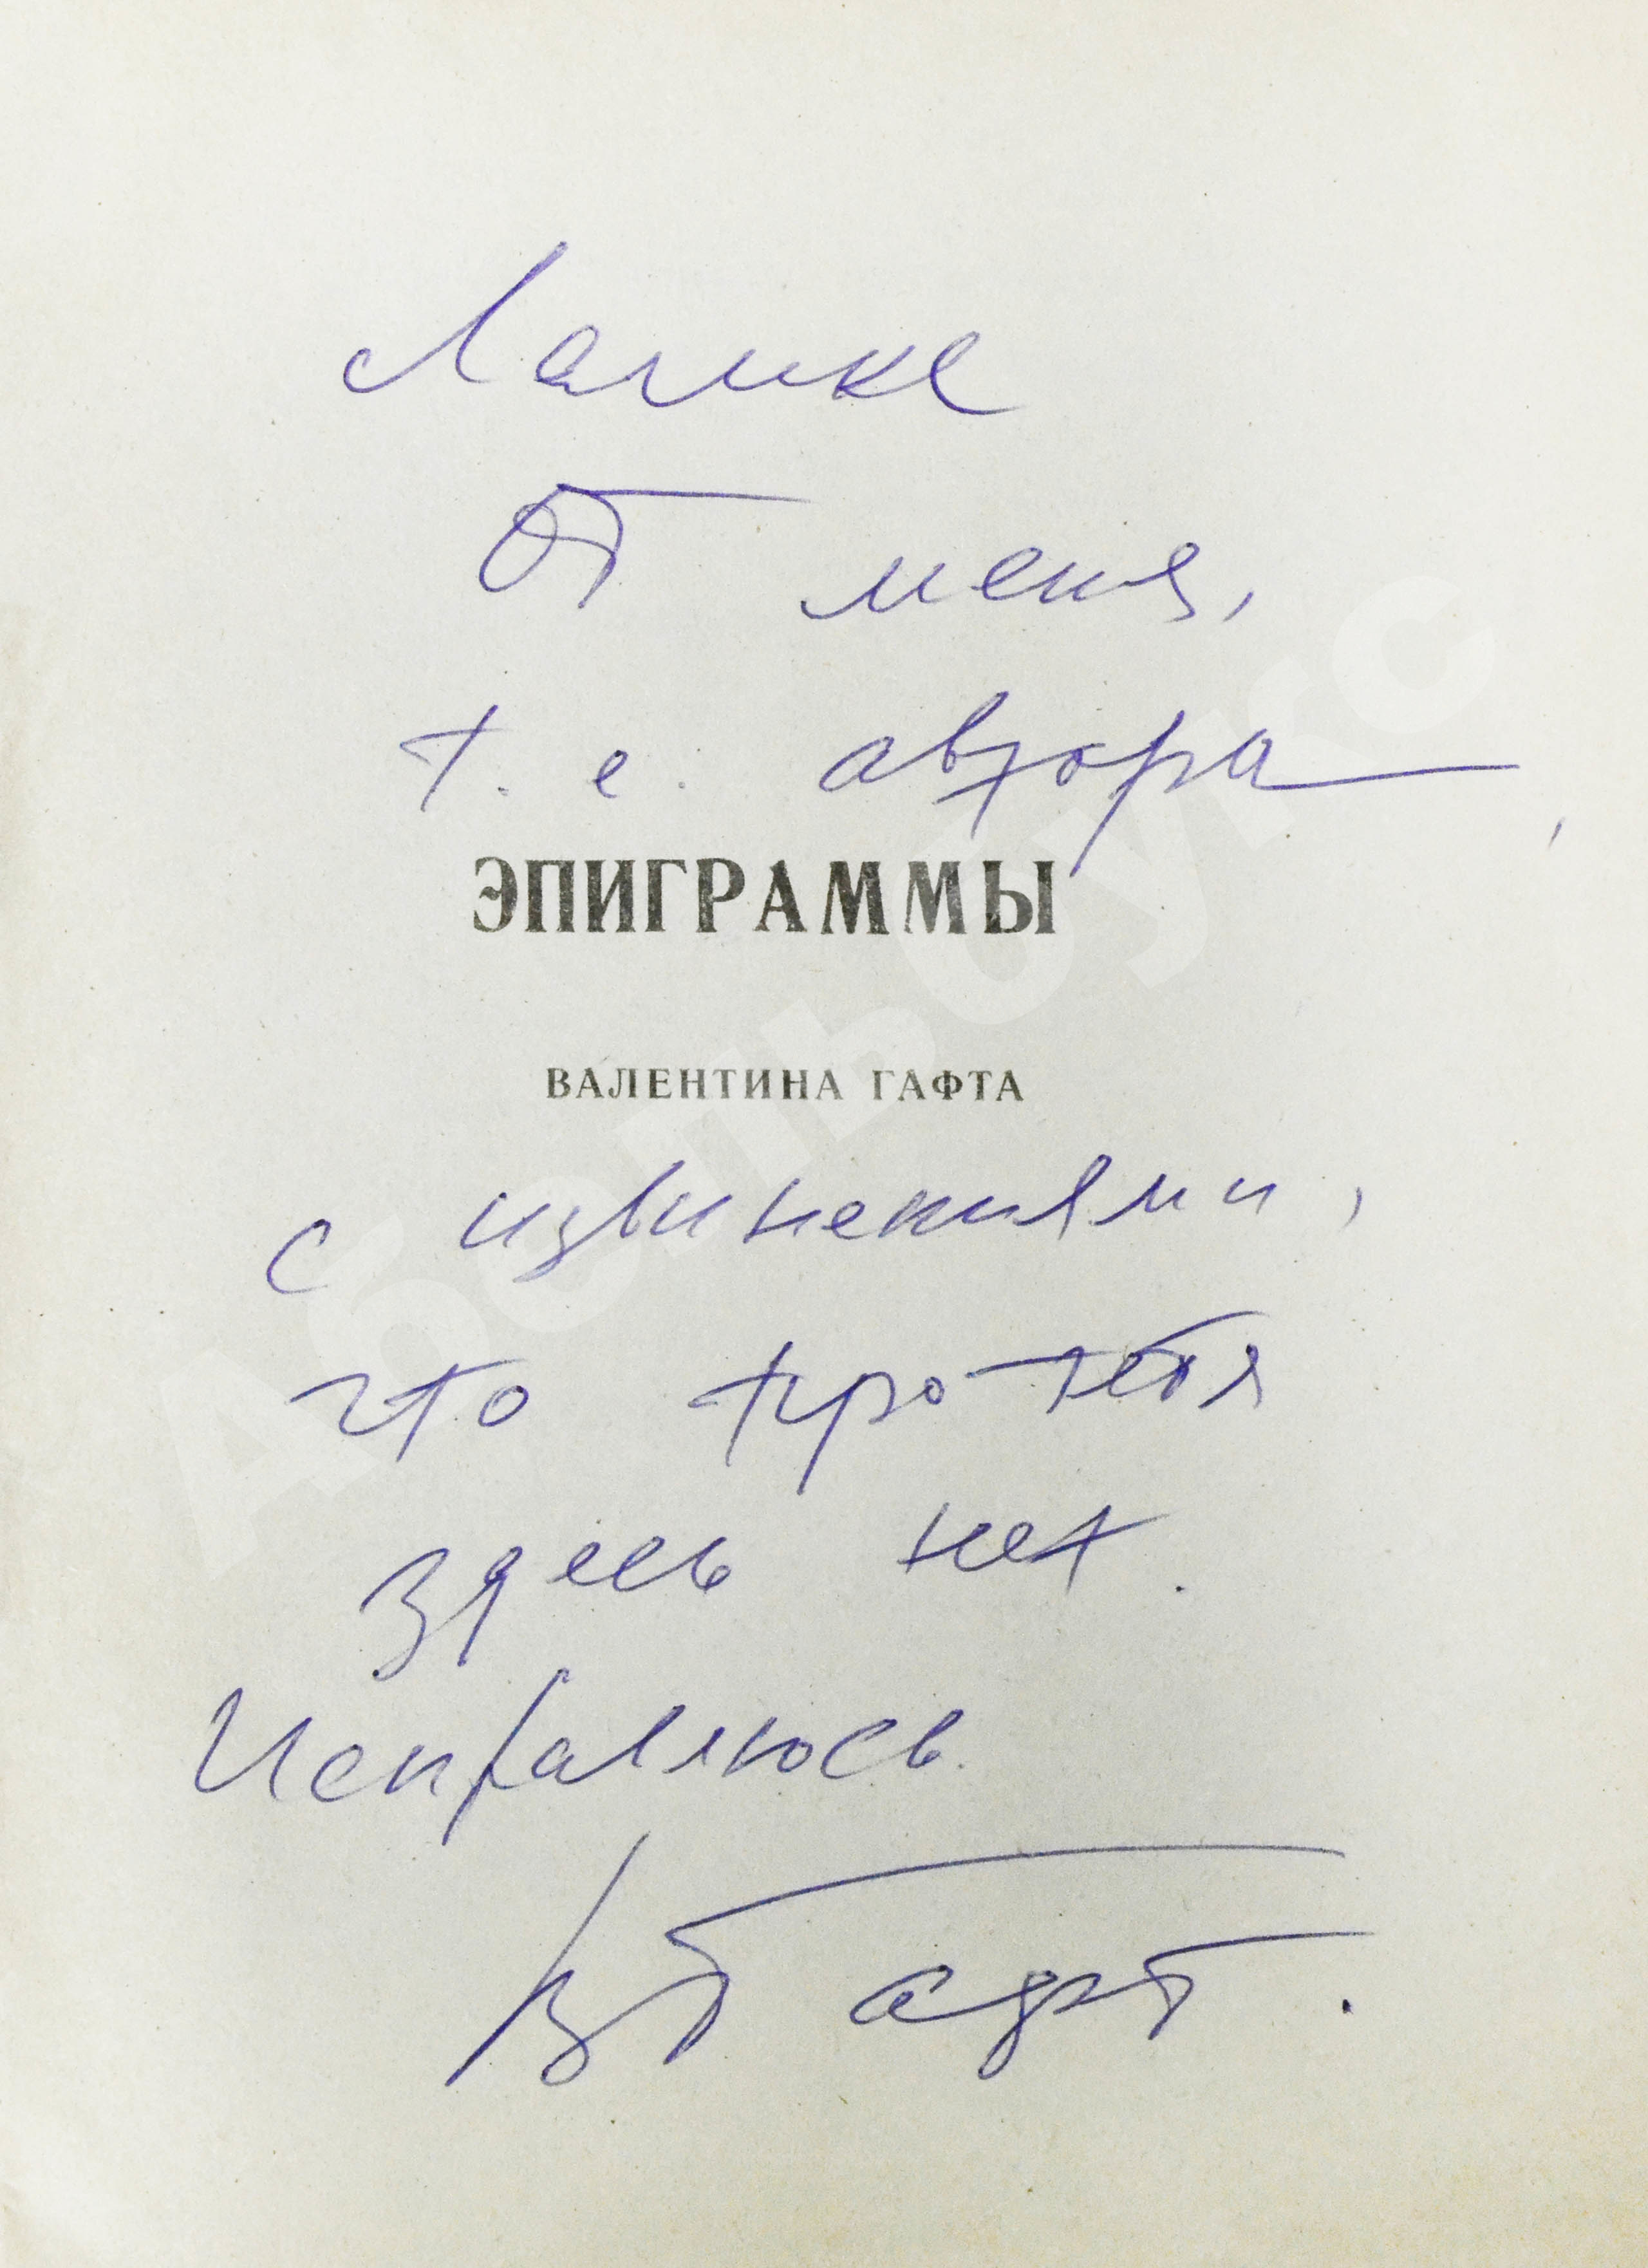 От меня,
т. е. автора,
ЭПИГРАММЫ
ВАЛЕНТИНА ГАФТА
с извинениями,
что про тебя
здесь нет.
Исправлюсь.
В Гафт.